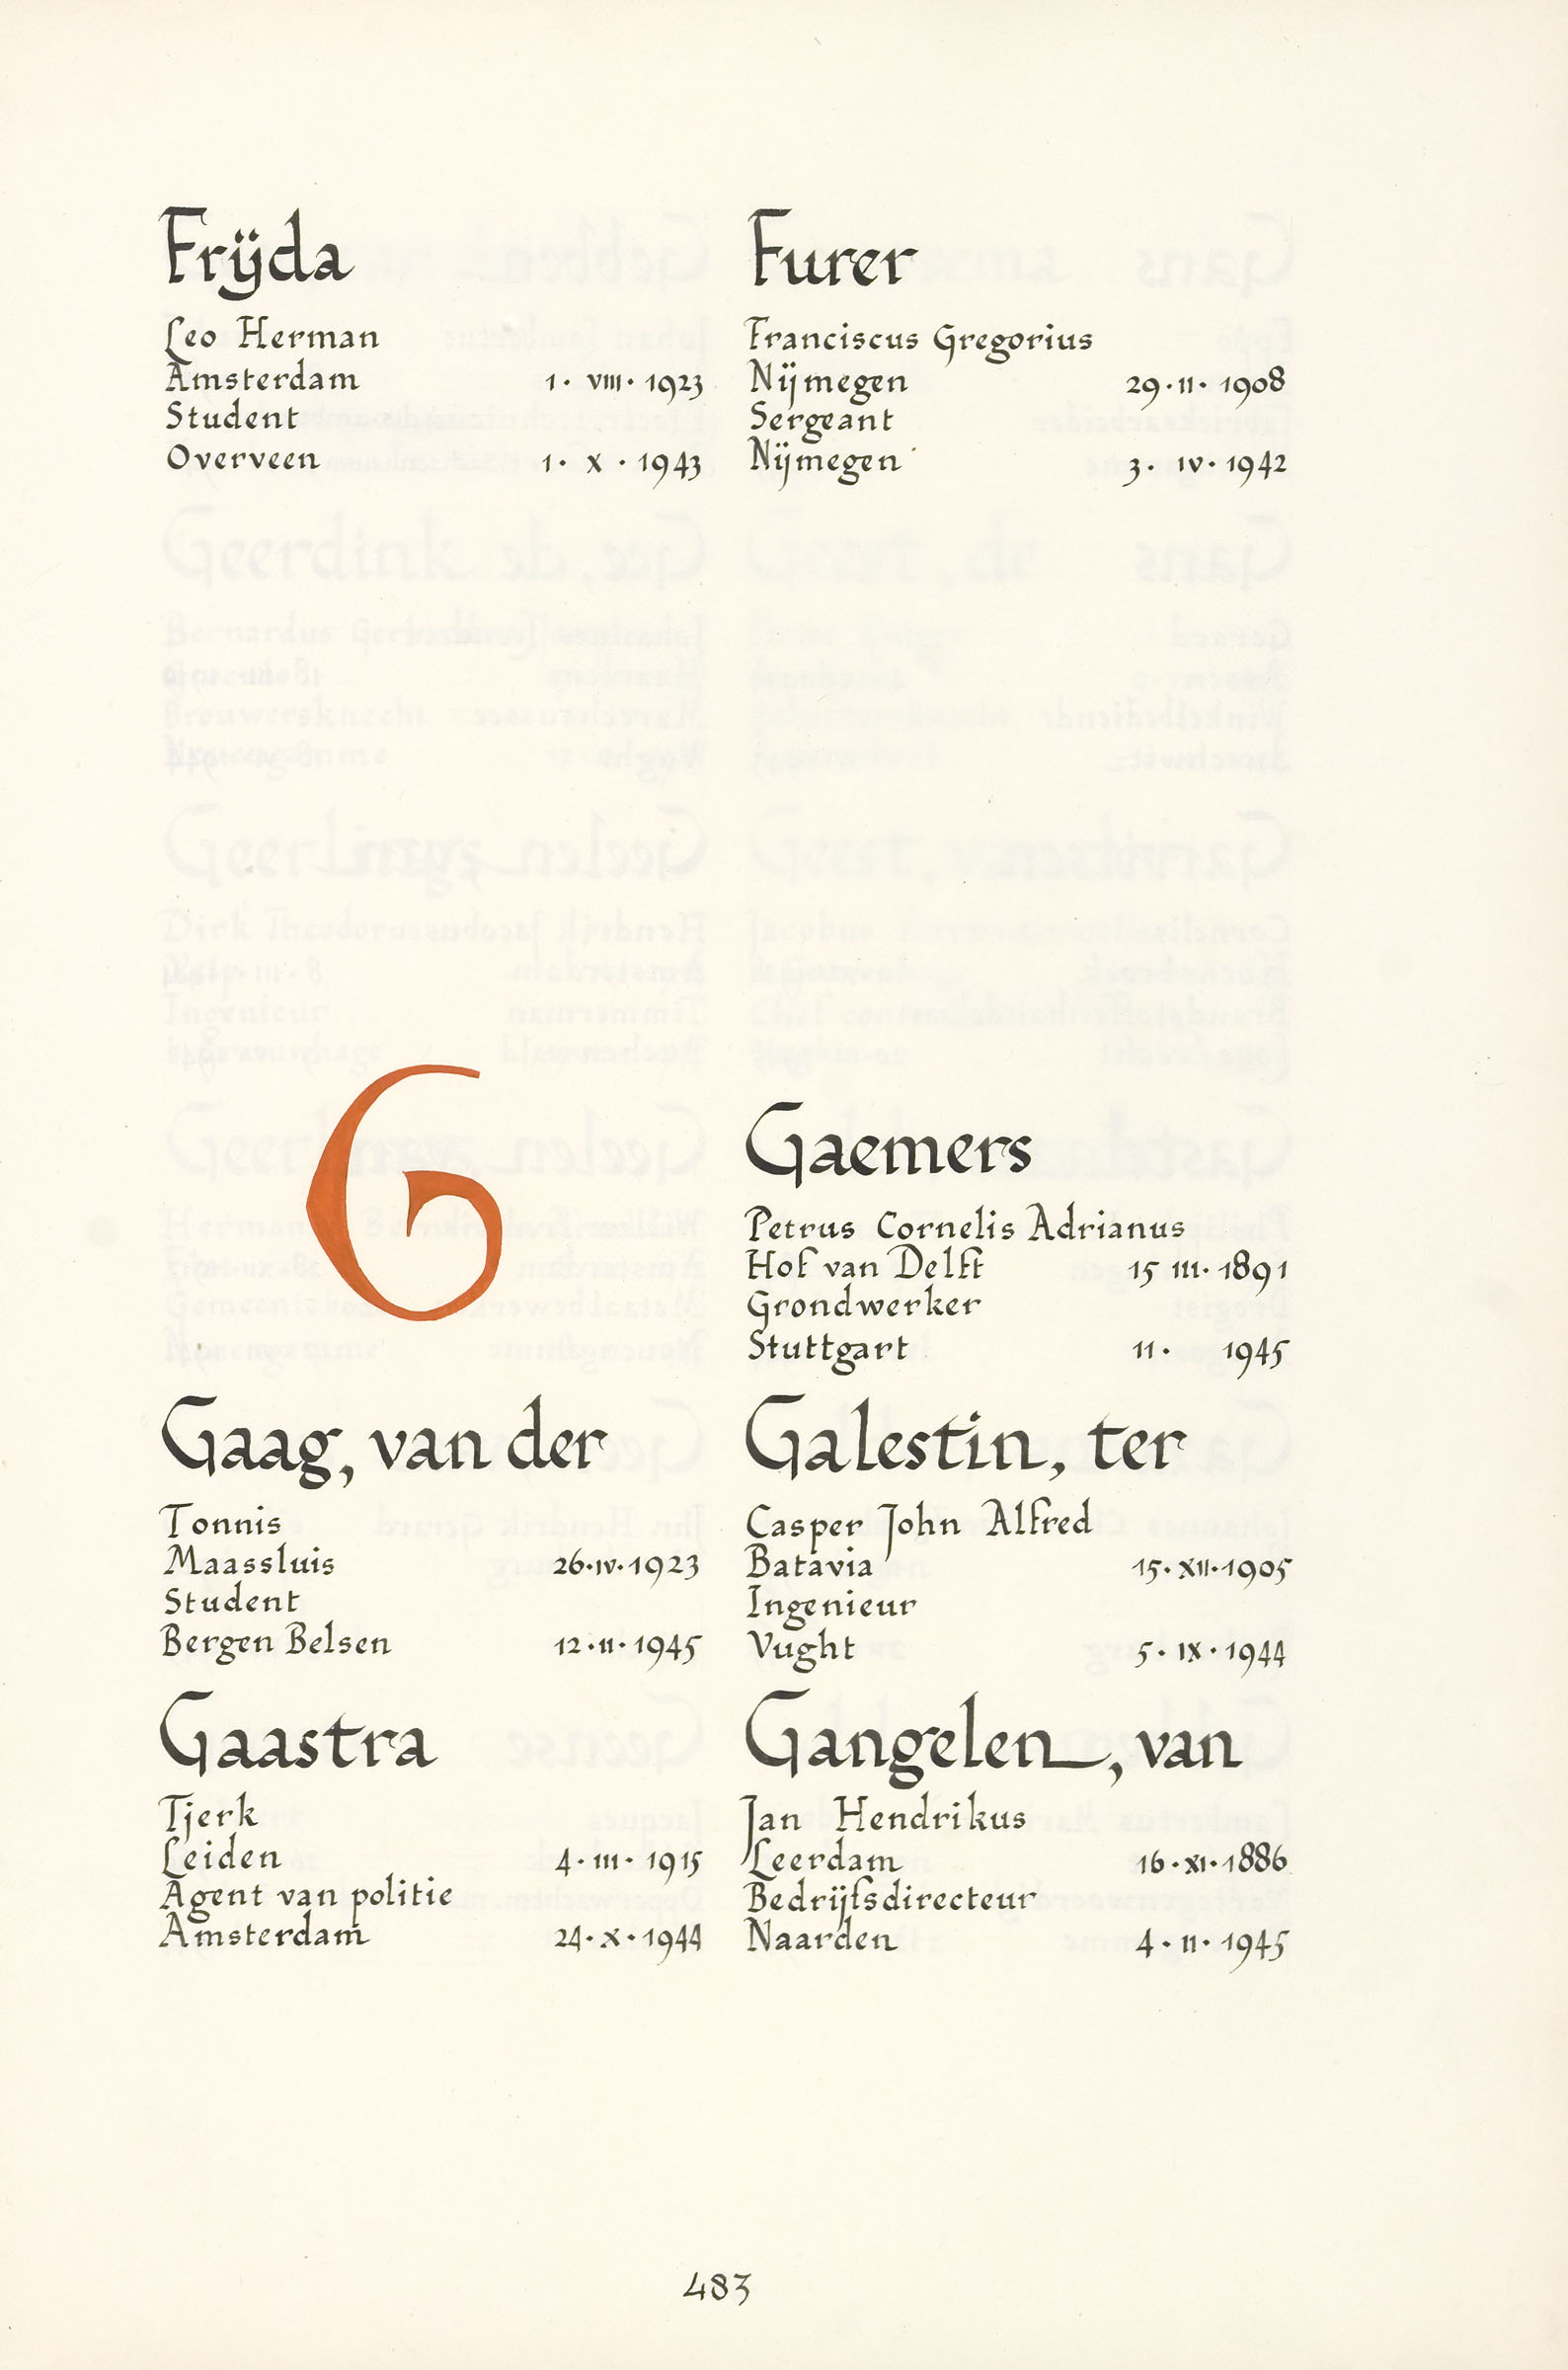 Frÿda
Leo Herman
Amsterdam 1· VIII· 1923
Student
Overveen 1· X · 1943
Furer
Franciscus Gregorius
Nijmegen 29·II· 1908
Sergeant
Nijmegen 3· IV· 1942
G
Gaag, van der
Tonnis
Maassluis 26·IV·1923
Student
Bergen Belsen 12·II·1945
Gaastra
Tjerk
Leiden 4·III· 1915
Agent van politie
Amsterdam 24·X·1944
Gaemers
Petrus Cornelis Adrianus
Hof van Delft 15 III· 1891
Grondwerker
Stuttgart 11· 1945
Galestin, ter
Casper John Alfred
Batavia 15·XII·1905
Ingenieur
Vught 5·IX·1944
Gangelen, van
Jan Hendrikus
Leerdam 16·XI·1886
Bedrijfsdirecteur
Naarden 4·II·1945
483